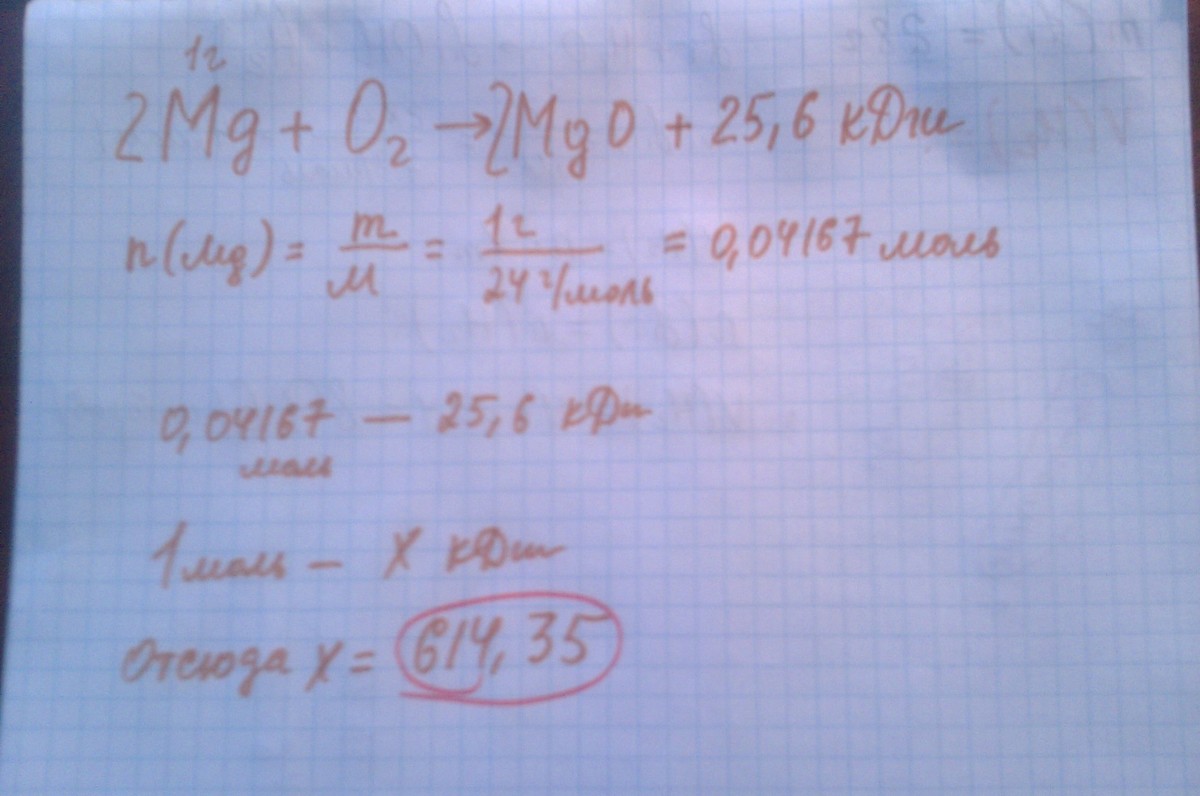 1г
2Mg + O₂ → 2MgO + 25,6 кДж
n(Mg) = m/M = 1г/24 г/моль = 0,04167 моль
0,04167 — 25,6 кДж
моль
1 моль — X кДж
Отсюда X = 614,35